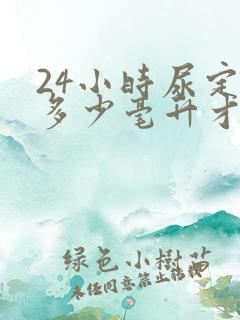 24小時尿定
多少毫升才
綠色小樹苗
未任同意禁止转榜